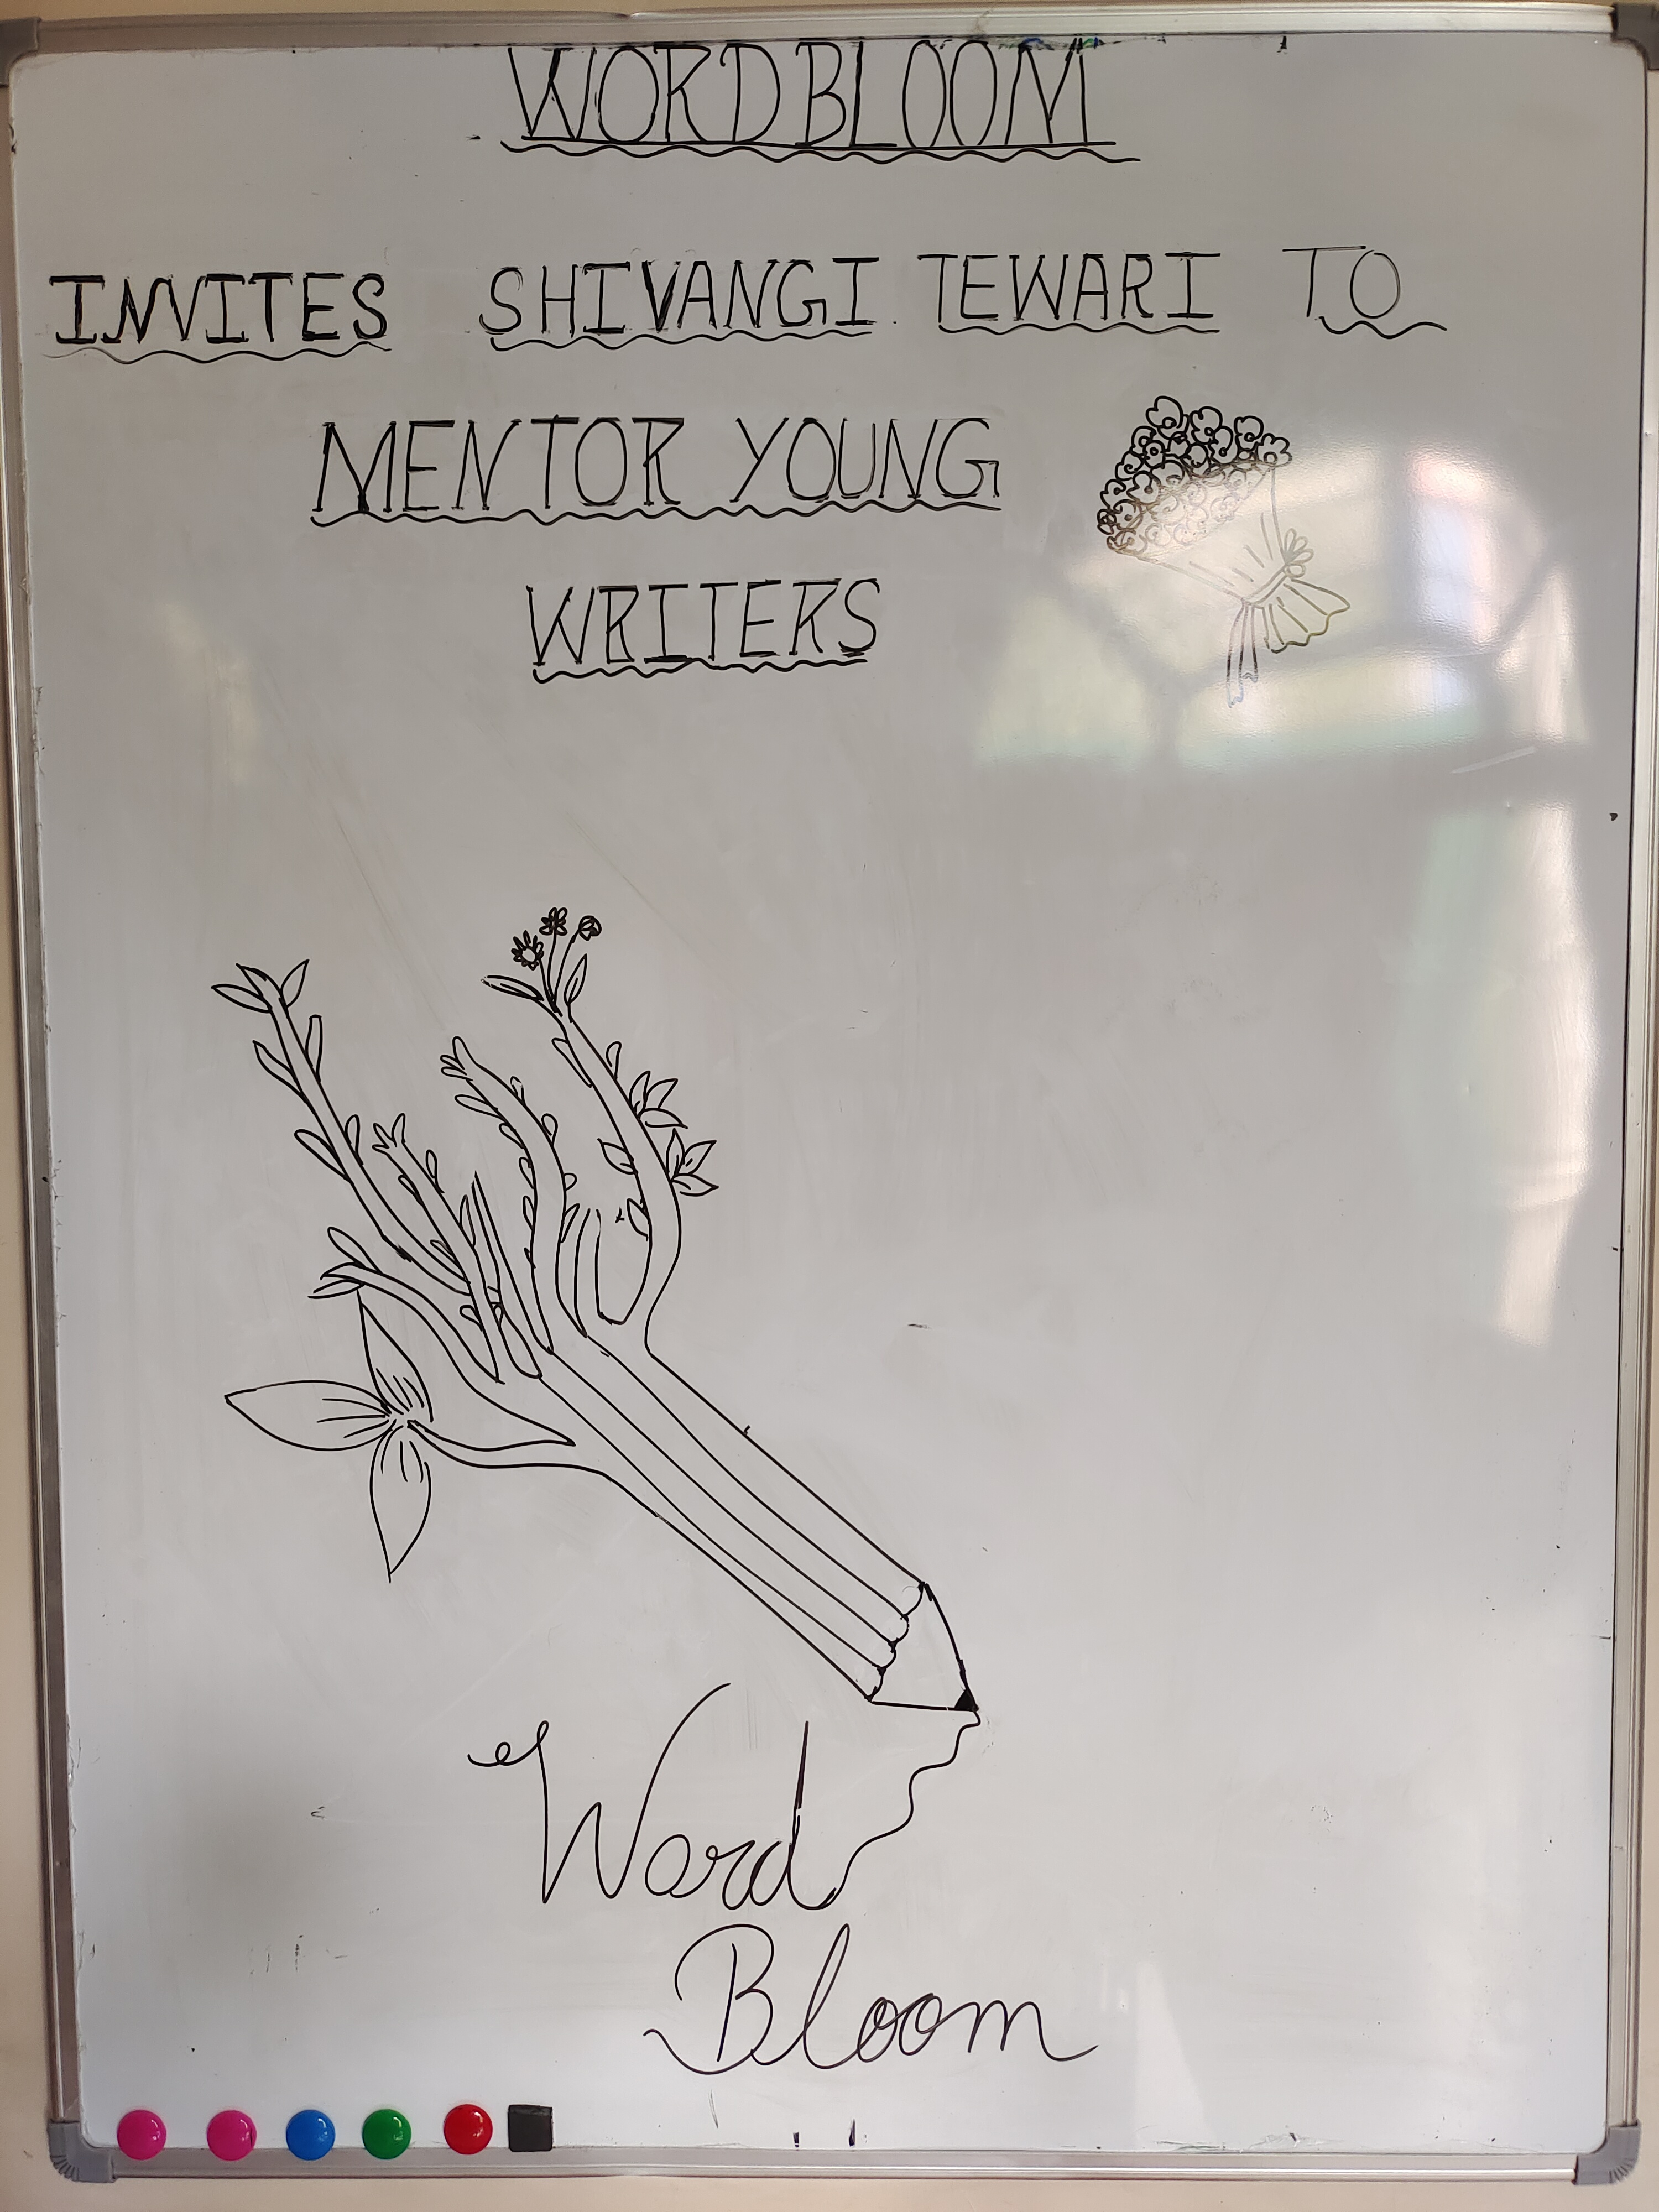 WORDBLOOM
INVITES SHIVANGI TEWARI TO
MENTOR YOUNG
WRITERS
Word
Bloom